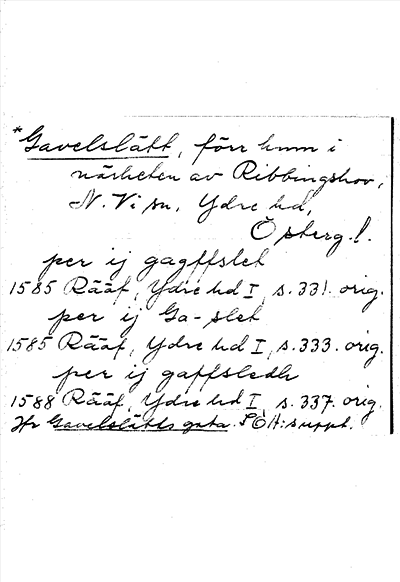 *Gavelslätt, förr hmm i
närheten av Ribbingshov,
N. Vi sn, Ydre hd,
Östergl.
per ij gagffslet
1585 Rääf, Ydre hd I, s. 331. orig.
per ij Ga-slet
1585 Rääf, Ydre hd I, s. 333. orig.
per ij gaffsledh
1588 Rääf, Ydre hd I, s. 337. orig.
Jfr Gavelslätts gata. SOÄ:suppl.